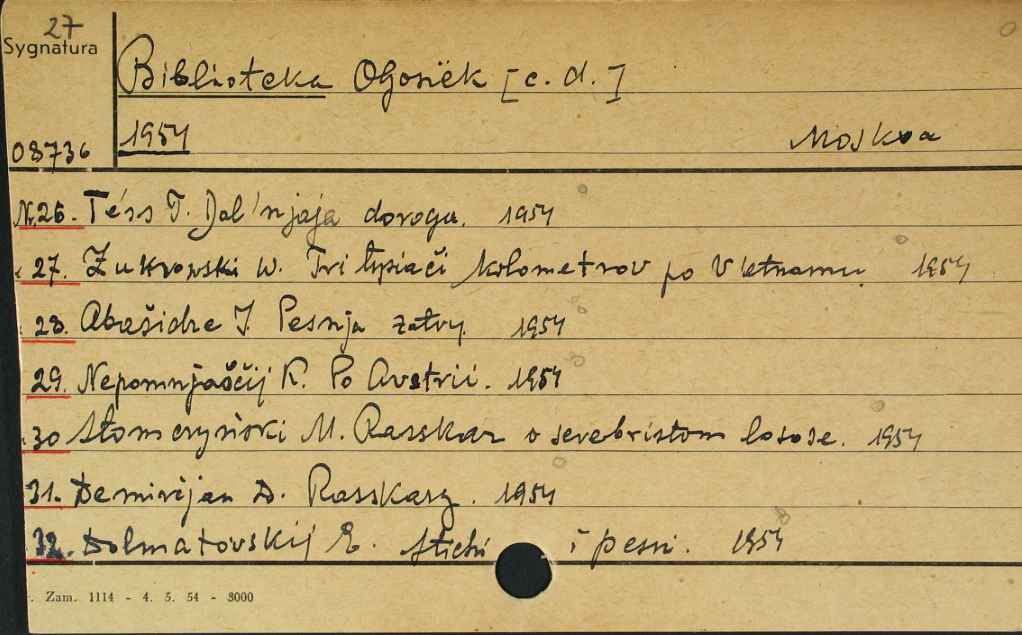 27
Sygnatura
Biblioteka Ogoniëk [c. d.]
1954 Moskva
08736
Nr. 26. Tèss T. Dal'njaja doroga. 1954
27. Żukrowski W. Tri tysiači kolometrov po Vietnamu. 1954
28. Abašidze I. Pesnja žatvy. 1954
29. Nepomnjaščij K. Po Avstrii. 1954
30 M. Rasskaz o serebristom losose. 1954
31. Demirčjan D. Rasskazy. 1954
32. Dolmatovskij E. Stichi i pesni. 1954
Zam. 1114 - 4. 5. 54 - 3000